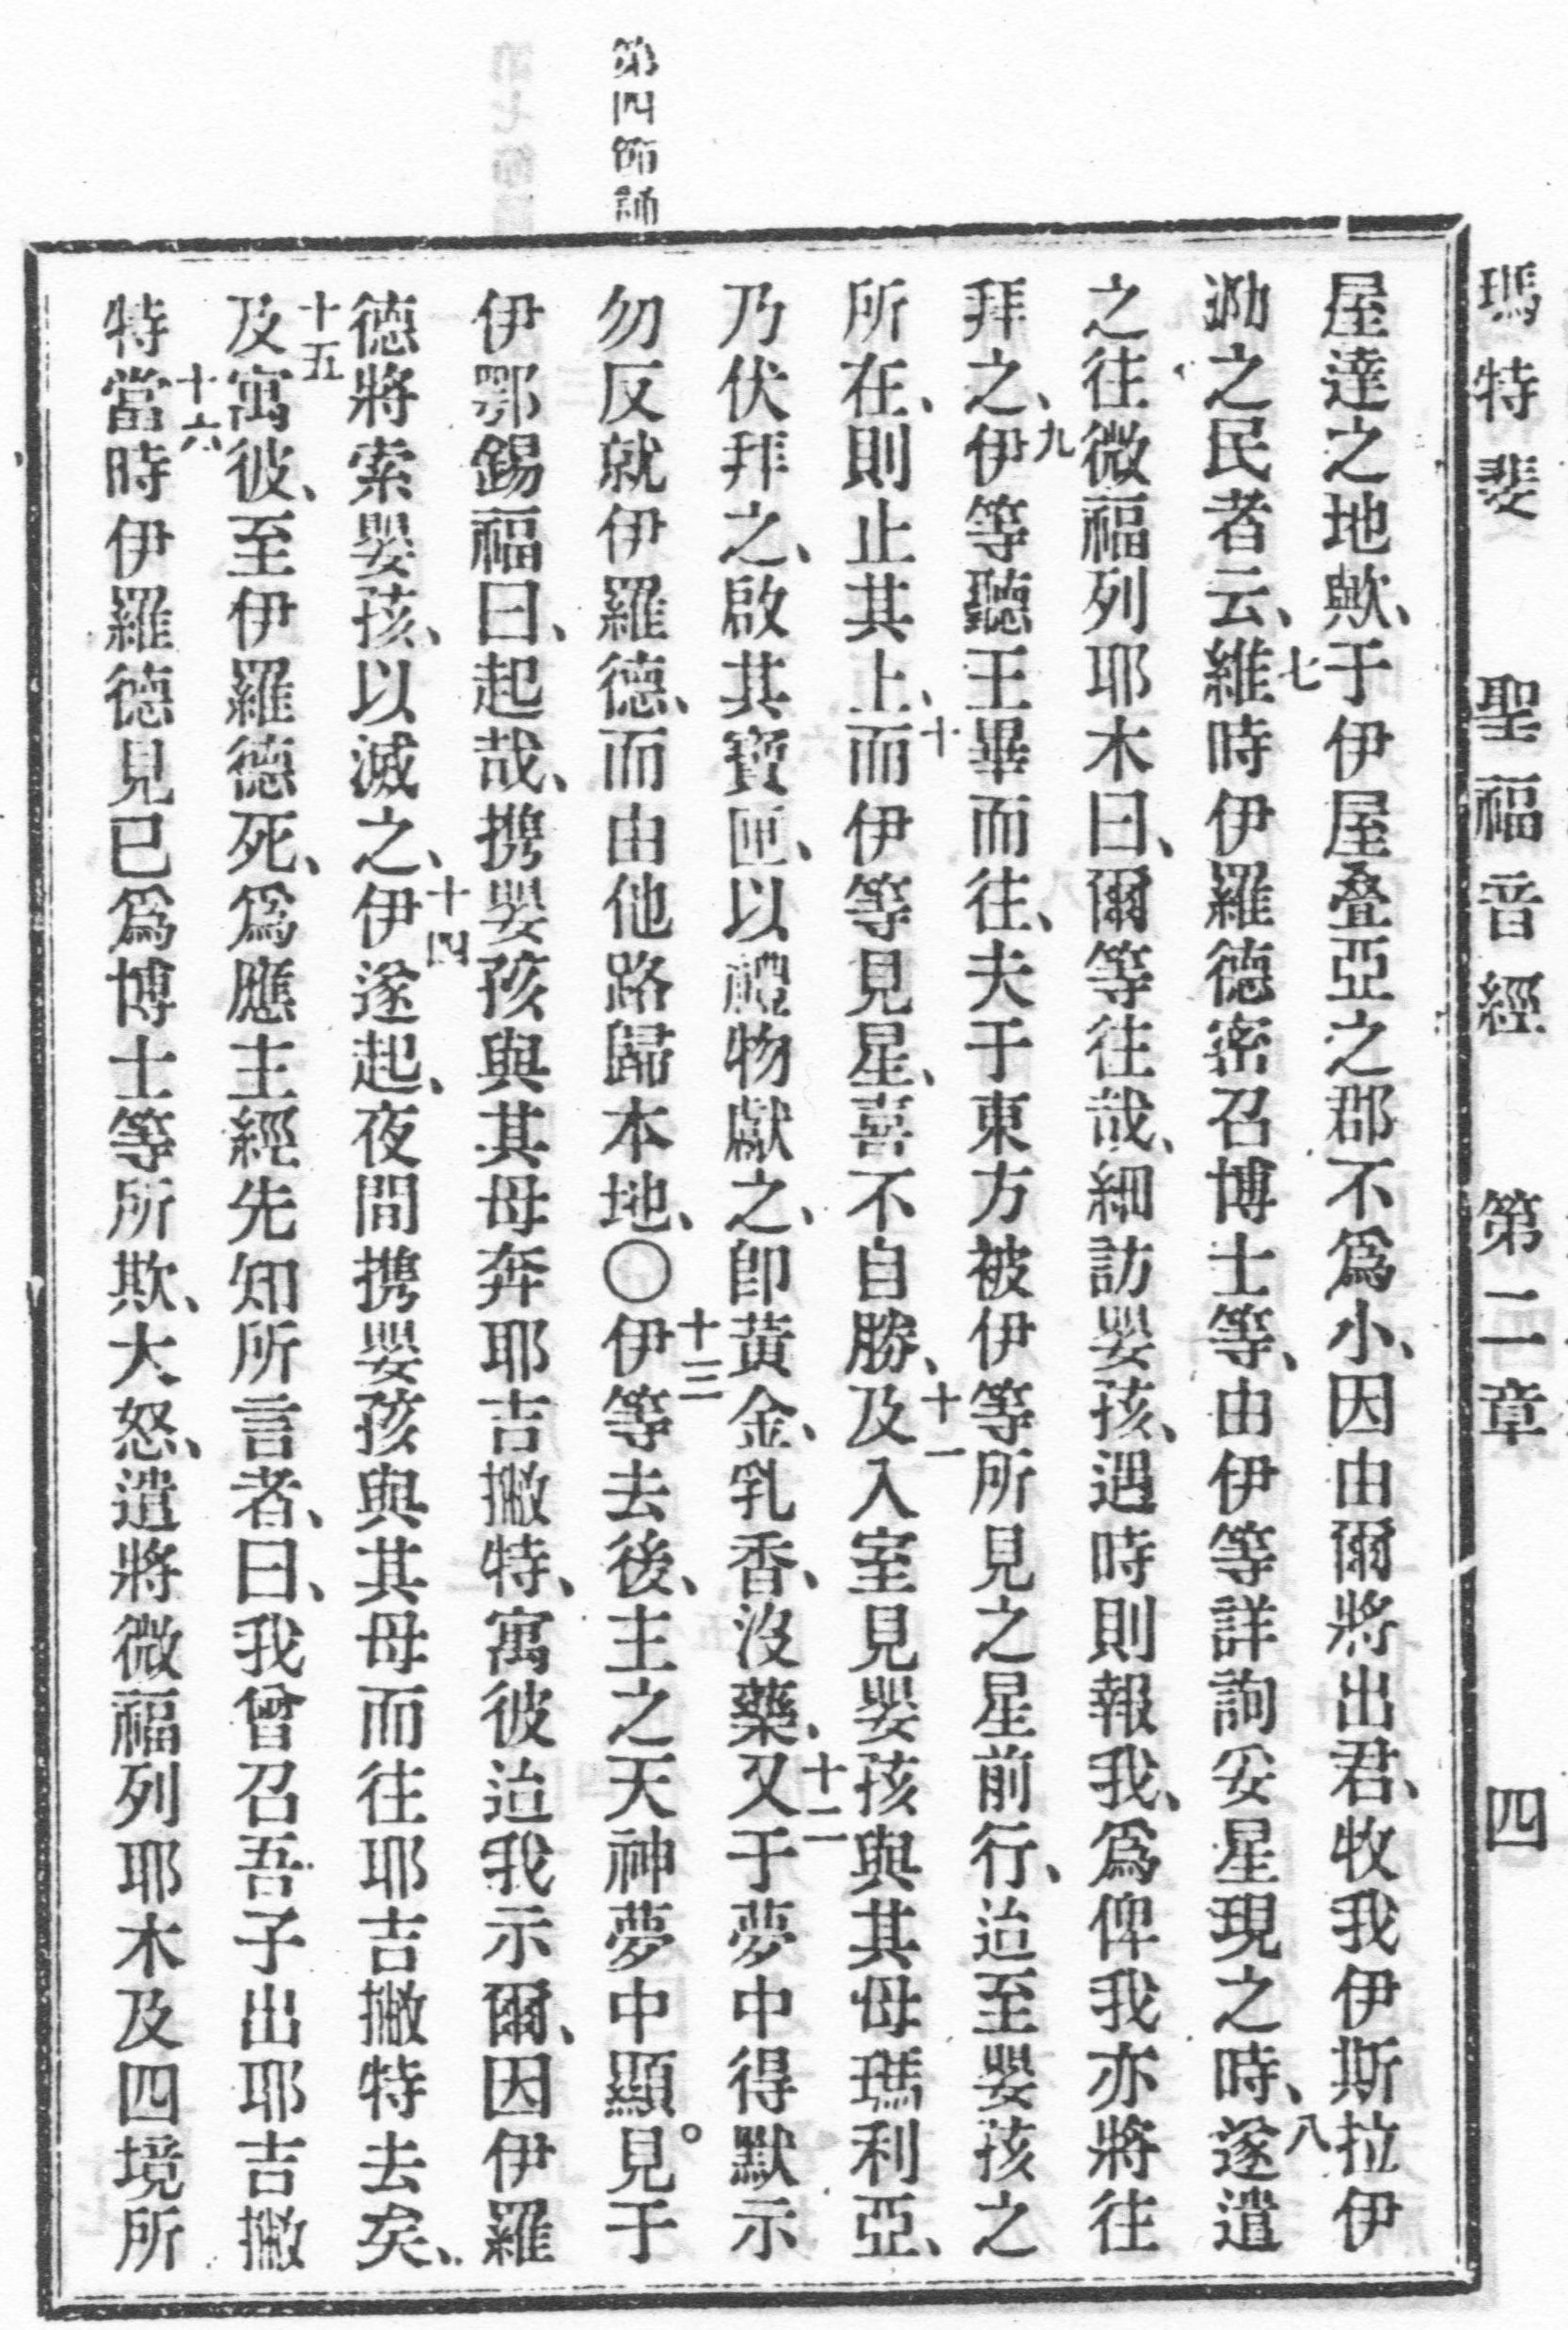 瑪特斐 聖福音經 第二章 四
屋達之地歟、于伊屋叠亞之郡不爲小、因由爾將出君、牧我伊斯拉伊
泐之民者云、七維時伊羅德密召博士等、由伊等詳詢妥星現之時、八遂遣
之往微福列耶木曰、爾等往哉、細訪嬰孩、遇時則報我、爲俾我亦將往
拜之、九伊等聽王畢而往、夫于東方被伊等所見之星前行、迨至嬰孩之
所在、則止其上、十而伊等見星、喜不自勝、十一及入室見嬰孩與其母瑪利亞、
乃伏拜之、啟其寶匣、以禮物獻之、卽黃金、乳香、沒藥、十二又于夢中得默示
第四節誦
勿反就伊羅德、而由他路歸本地、〇十三伊等去後、主之天神夢中顯見。于
伊鄂錫福曰、起哉、携嬰孩與其母奔耶吉撇特、寓彼迨我示爾、因伊羅
德將索嬰孩、以滅之、十四伊遂起、夜間携嬰孩與其母而往耶吉撇特去矣、
十五及寓彼、至伊羅德死、爲應主經先知所言者、曰、我曾召吾子出耶吉撇
特十六當時伊羅德見已爲博士等所欺、大怒、遣將微福列耶木及四境所